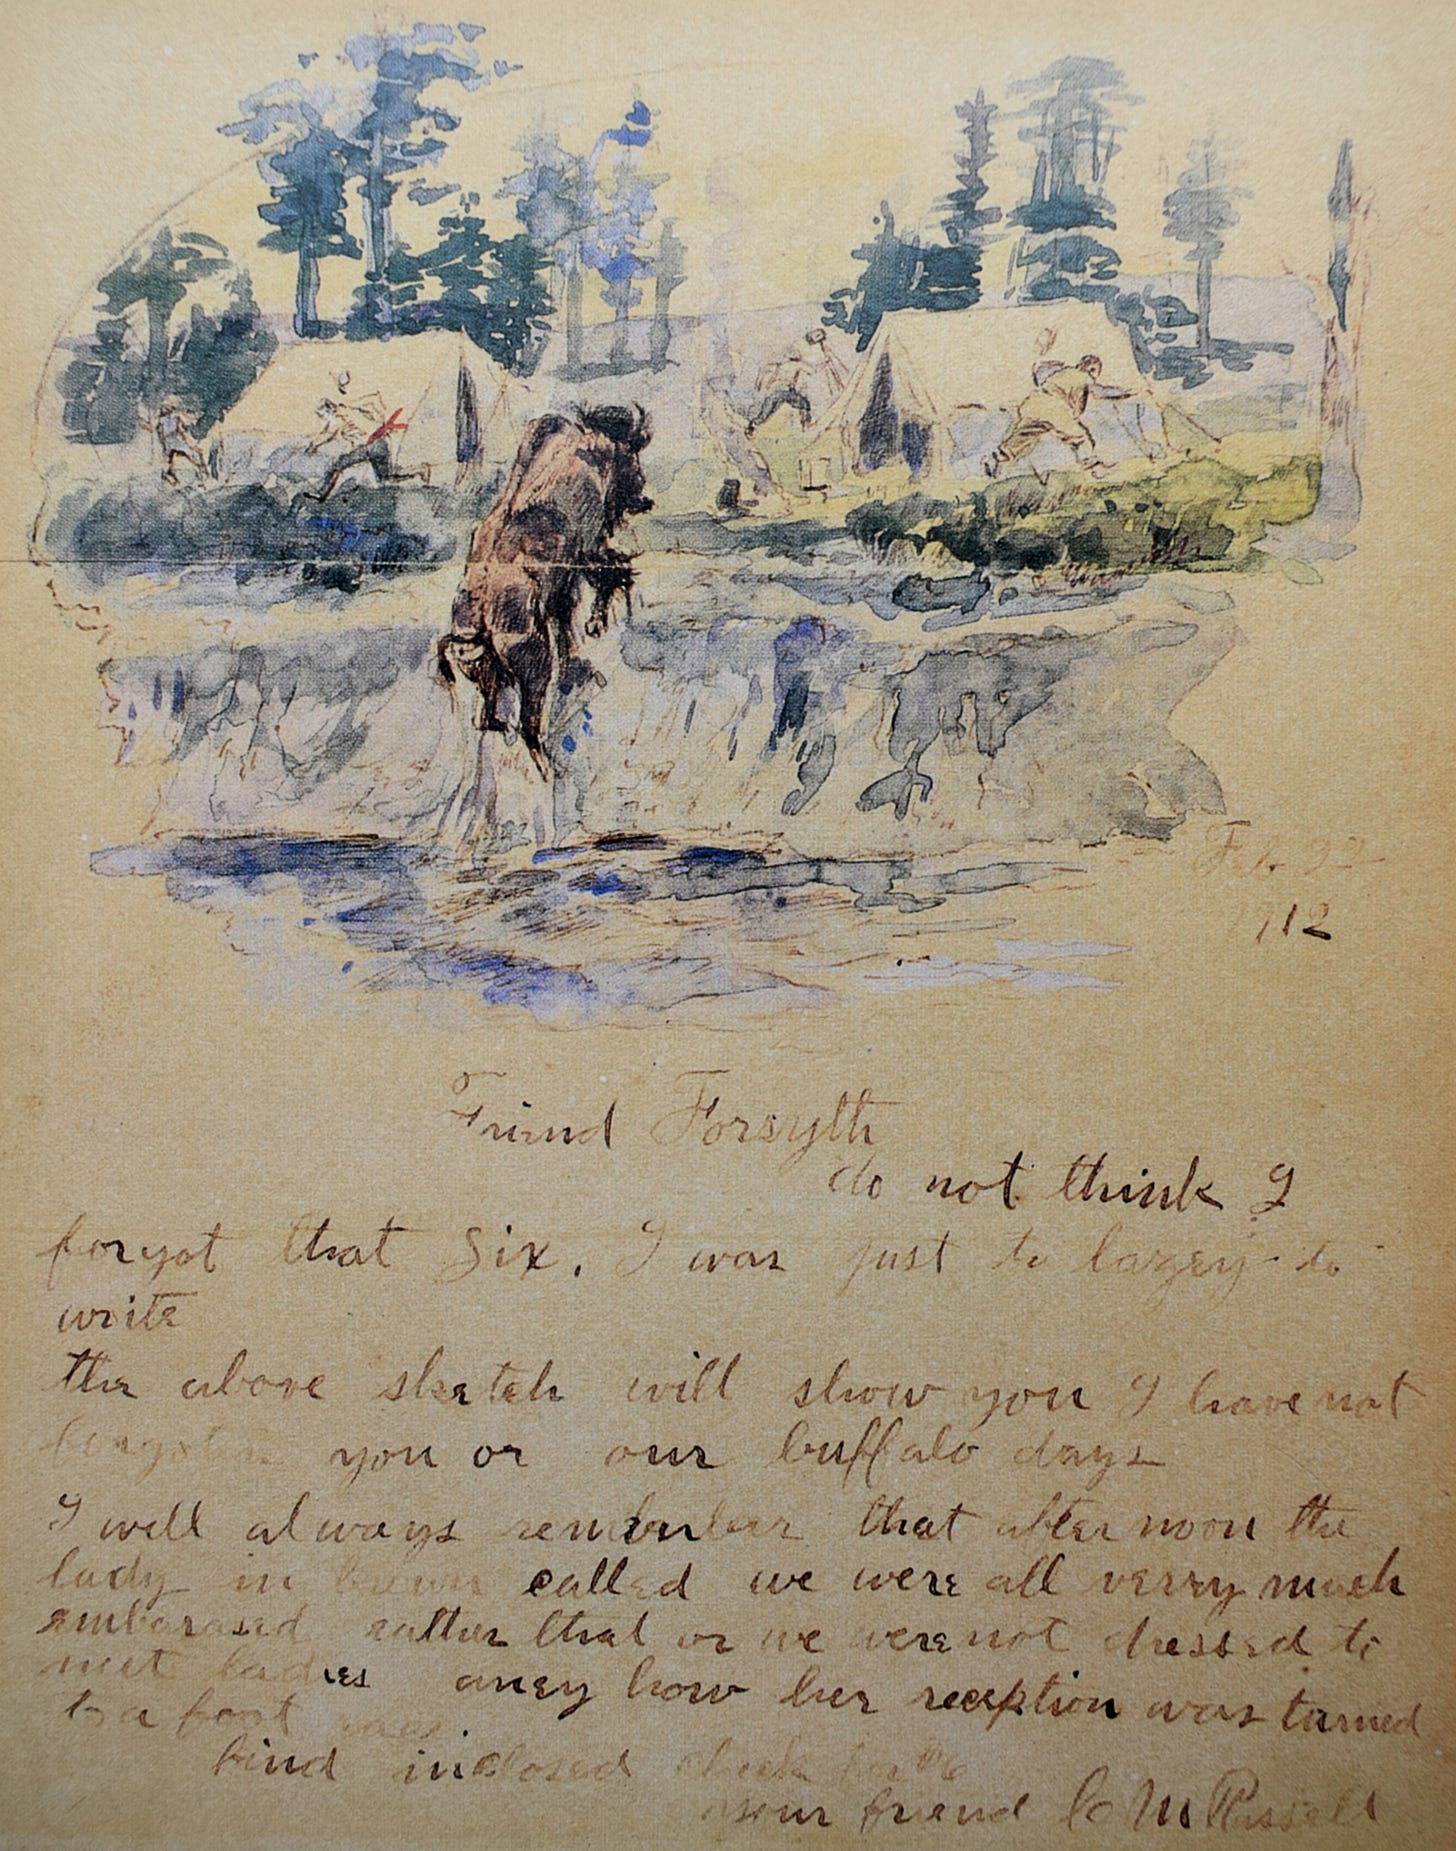 Feb
1912
Friend Forsyth
do not think I
forgot that Six. I was just to lazey to
write
the above sketch will show you I have not
you or our buffalo days
I will always remember that after noon the
lady in brown called we were all verry much
embarased rather that or we were not dressed to
meet ladies aney how her reception was turned
to a foot race.
find inclosed check for $6
your friend C M Russell